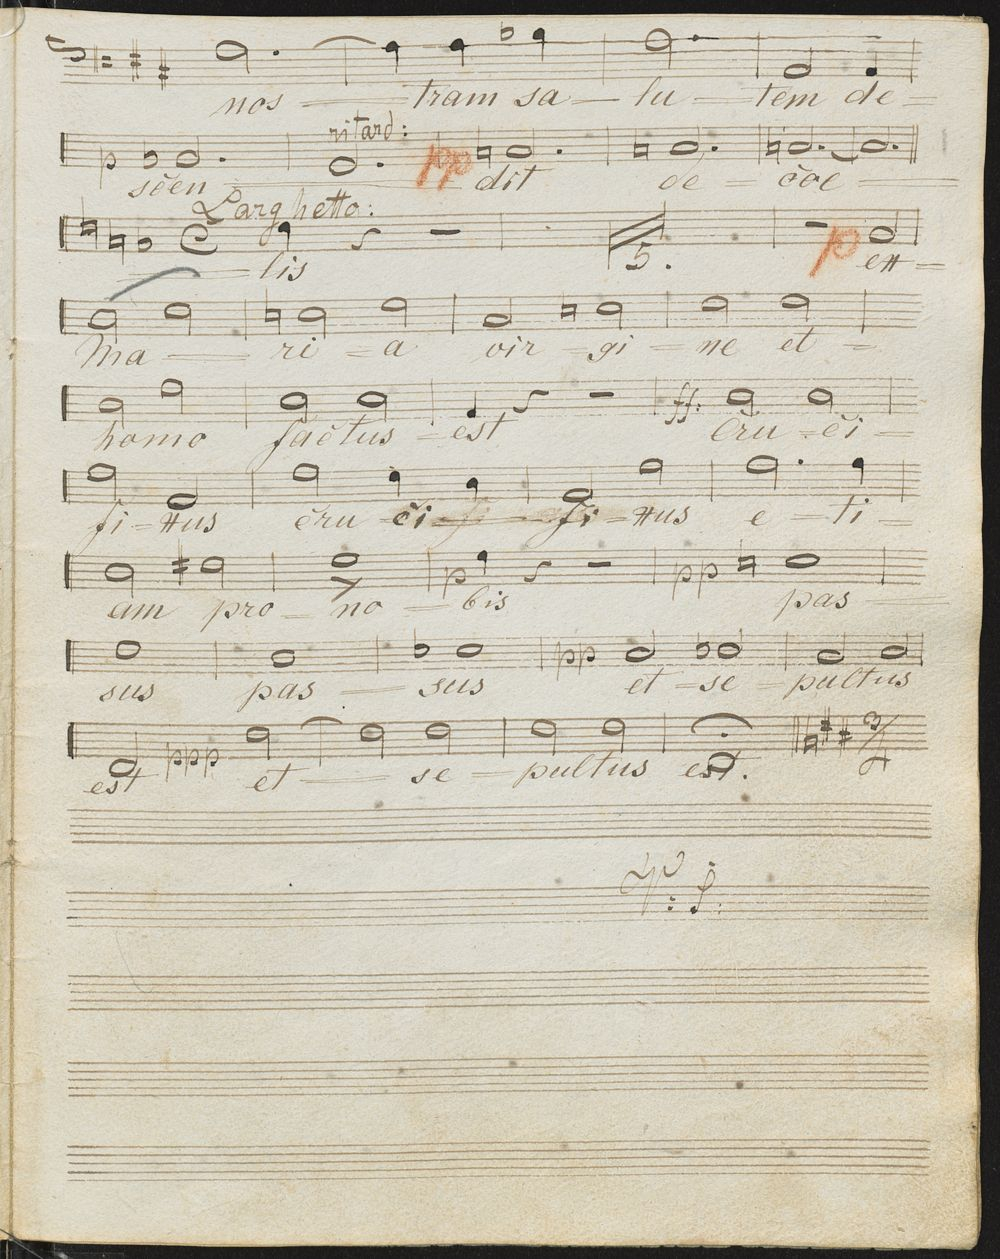 nos — tram sa — lu — tem de =
ritard:
pp
scen — dit de — coe —
Larghetto:
— lis 5. p ex =
Ma — ri — a vir — gi — ne et —
ff:
homo factus — est cru — ci —
fi — xus cru — ci — fi — xus e — ti —
p pp
am pro — no — bis pas —
pp
sus pas — sus et — se — pultus
ppp 3/4
est et — se — pultus est.
V: S: